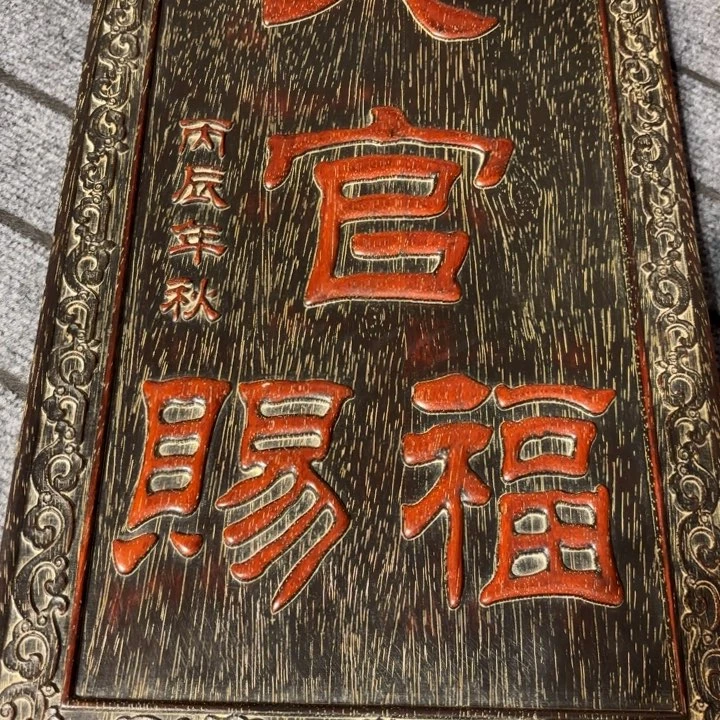 官
丙辰年秋
賜福